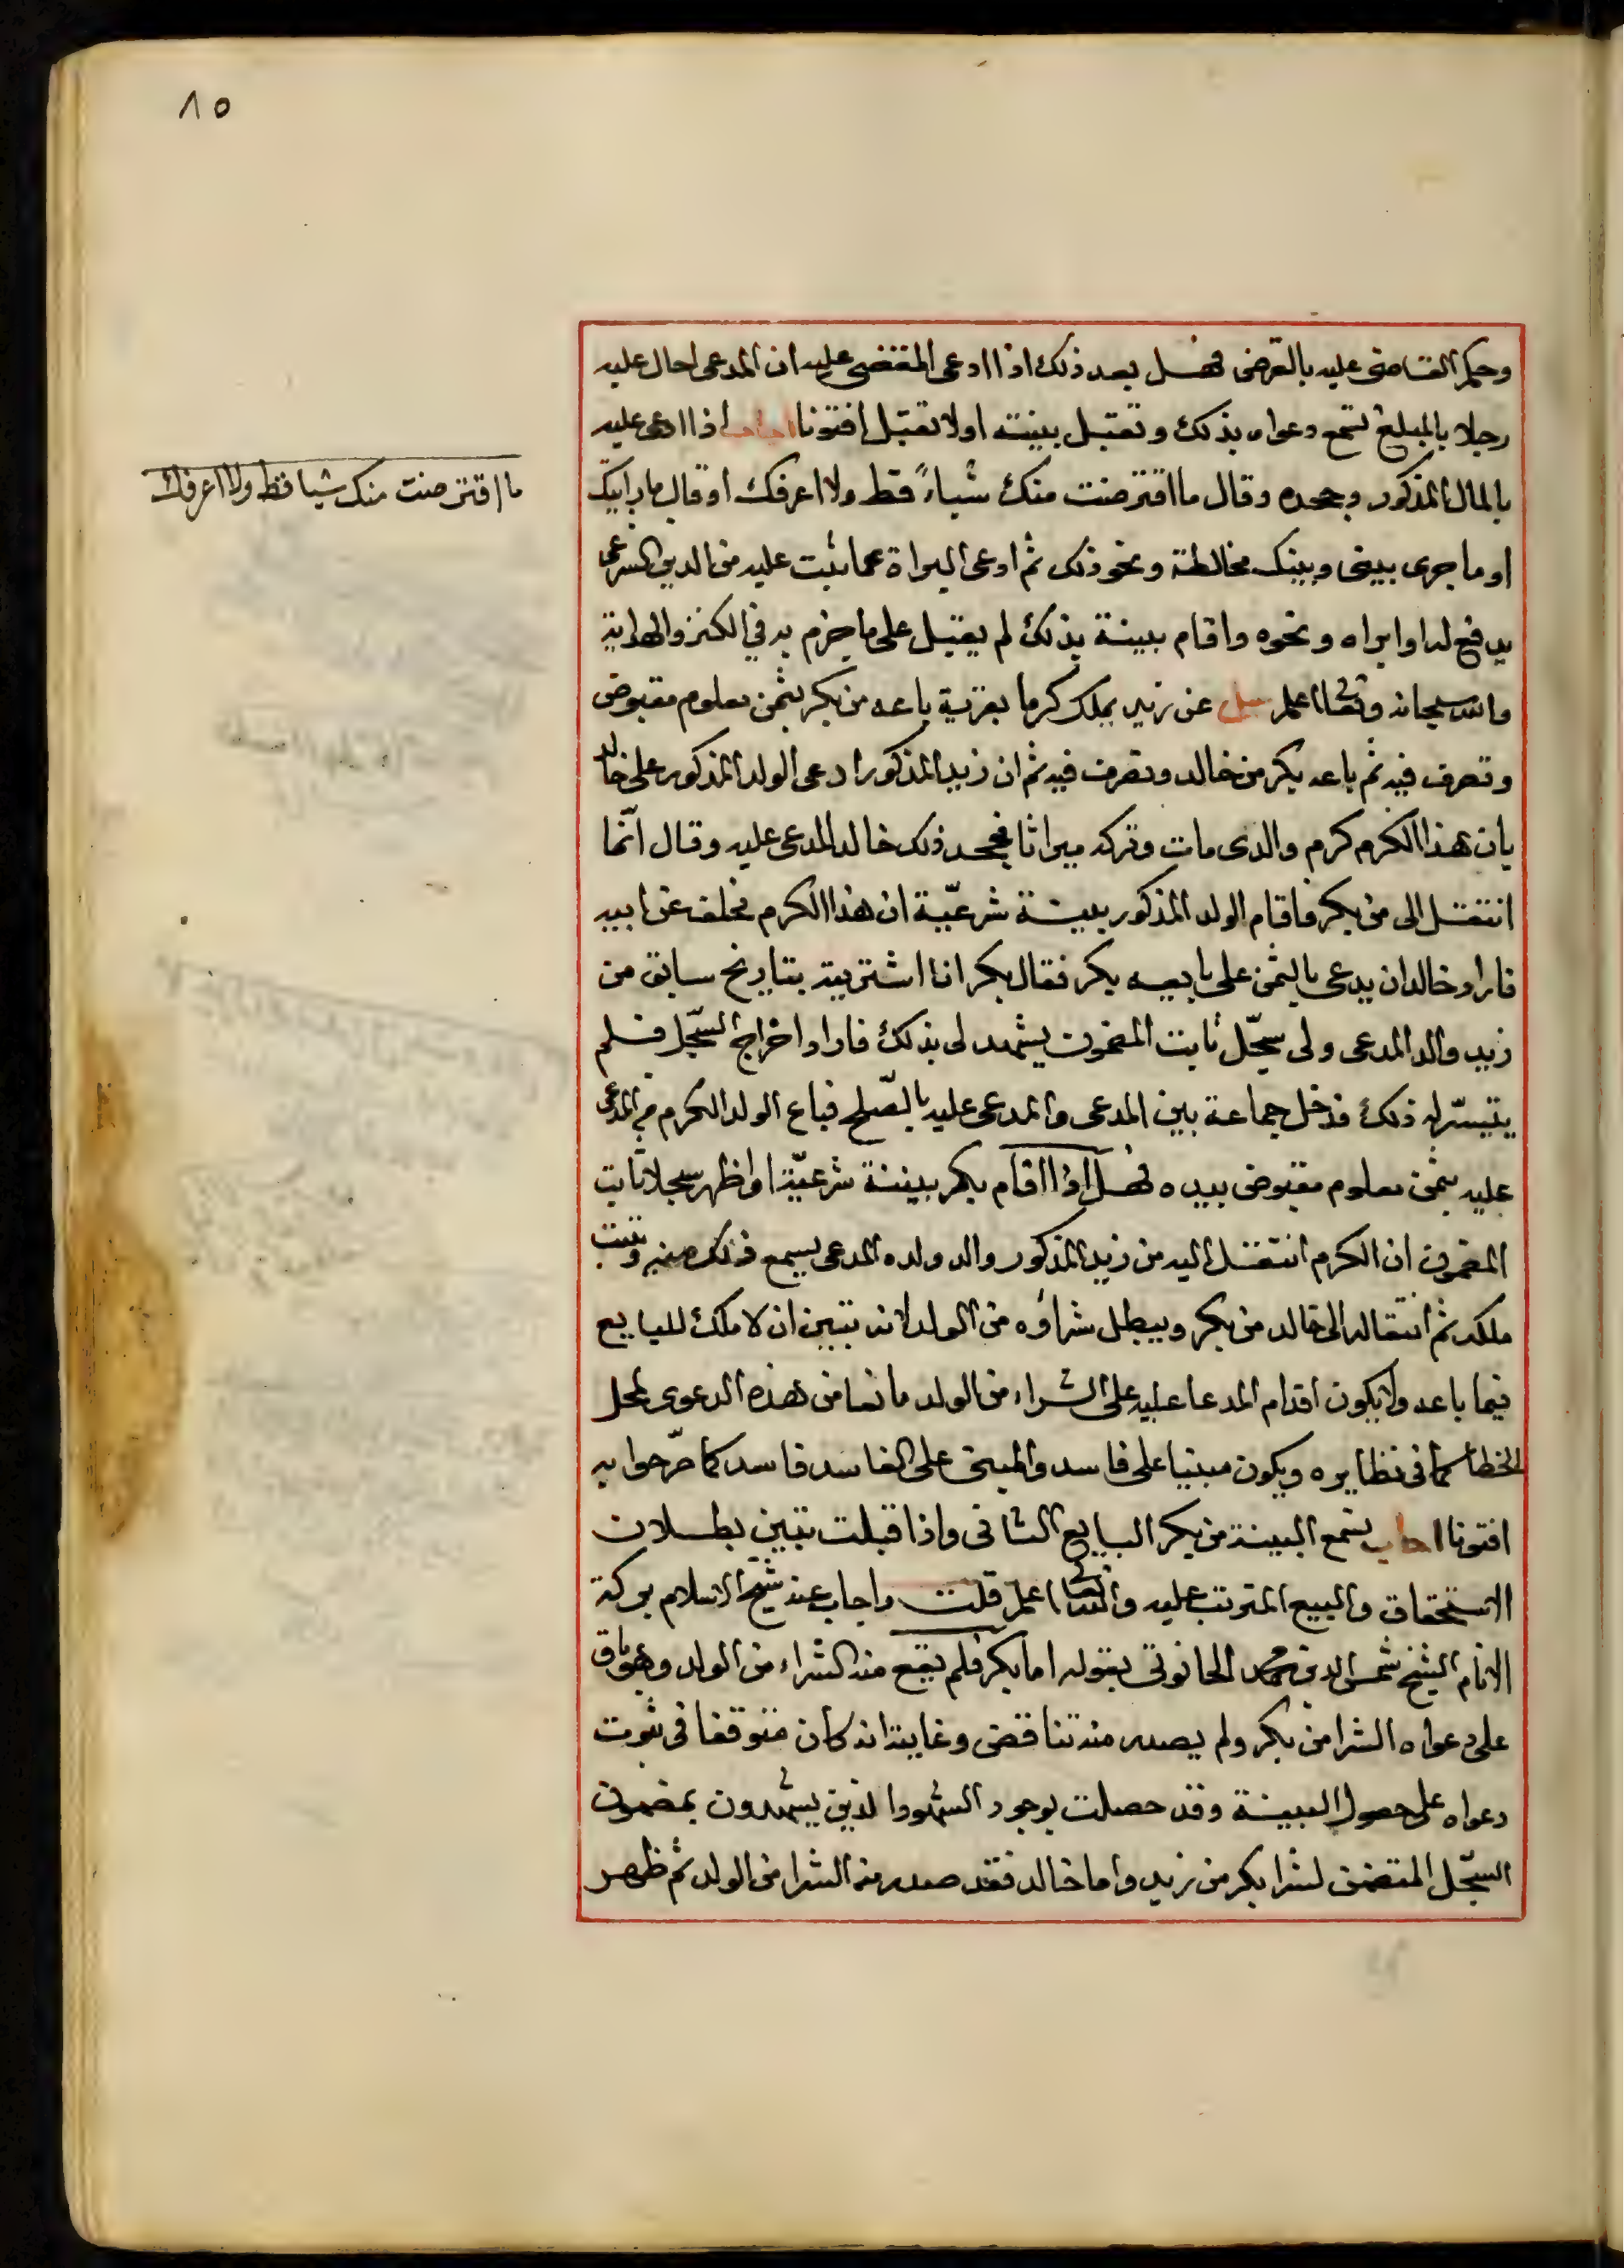 ٨٥
وحكم القاضى عليه بالقرض فهل بعد ذلك اذا ادعى المقتضى عليه ان المدعى احال عليه
رجلا بالمبلغ تسمع دعواه بذلك وتقبل بينته اولا تقبل افتونا اجاب اذا ادعى عليه
بالمال المذكور وجحده وقال ما اقترضت منك شياءً قط ولا اعرفك او قال ما رايتك
ما اقترضت منك شيا قط ولا اعرفك
او ما جرى بينى وبينك مخالطة ونحو ذلك ثم ادعى البراة عما ثبت عليه من الدين الشرعى
يدفع له او ابراه ونحوه واقام بينة بذلك لم يقبل على ما جزم به في الكنز والهداية
والله سبحانه وتعالى اعلم سيل عن زيد يملك كرما بقرية باعه من بكر بثمن معلوم مقبوض
وتصرف فيه ثم باعه بكر من خالد وتصرف فيه ثم ان زيد المذكور ادعى الولد المذكور على خالد
بان هذا الكرم كرم والدى مات وتركه ميراثا فجحد ذلك خالد المدعى عليه وقال انّما
انتقل الى من بكر فاقام الولد المذكور ببينة شرعيّة ان هذا الكرم مخلف عن ابيه
فاراد خالد ان يدعى بالثمن على بايعه بكر فقال بكر انا اشتريته بتاريخ سابق من
زيد والد المدعى ولى سجّل ثابت المضمون يشهد لى بذلك فاراد اخراج السّجل فلم
يتيسّر له ذلك فدخل جماعة بين المدعى والمدعى عليه بالصّلح فباع الولد الكرم من المدعى
عليه بثمن معلوم مقبوض بيده فهل اذا اقام بكر ببينة شرعيّة او اظهر سجلا ثابت
المضمون ان الكرم انتقل اليه من زيد المذكور والد ولده المدعى يسمع ذلك منه وتثبت
ملكه ثم انتقاله الى خالد من بكر ويبطل شراؤه من الولد لانه تبين ان لا ملك للبايع
فيما باعه ولا يكون اقدام المدعا عليه على الشراء من الولد مانعا من هذه الدعوى لمحل
الخطا كما فى نظايره ويكون مبنيا على فاسد والمبنى على الفاسد فاسد كما صرّحوا به
افتونا اجاب تسمع البينة من بكر البايع الثانى واذا قبلت تبين بطلان
الاستحقاق والبيع المترتب عليه والله تعالى اعلم قلت واجاب عنه شيخ الاسلام بركة
الانام الشيخ شمس الدين محمد الحانوتى بقوله اما بكر فلم يقع منه الشراء من الولد وهو باق
على دعواه الشرا من بكر ولم يصدر منه تناقض وغايته انه كان متوقفا فى ثبوت
دعواه على حصول البينة وقد حصلت بوجود الشهود الذين يشهدون بمضمون
السجّل المتضمن لشرا بكر من زيد واما خالد فقد صدر منه الشرا من الولد ثم ظهر